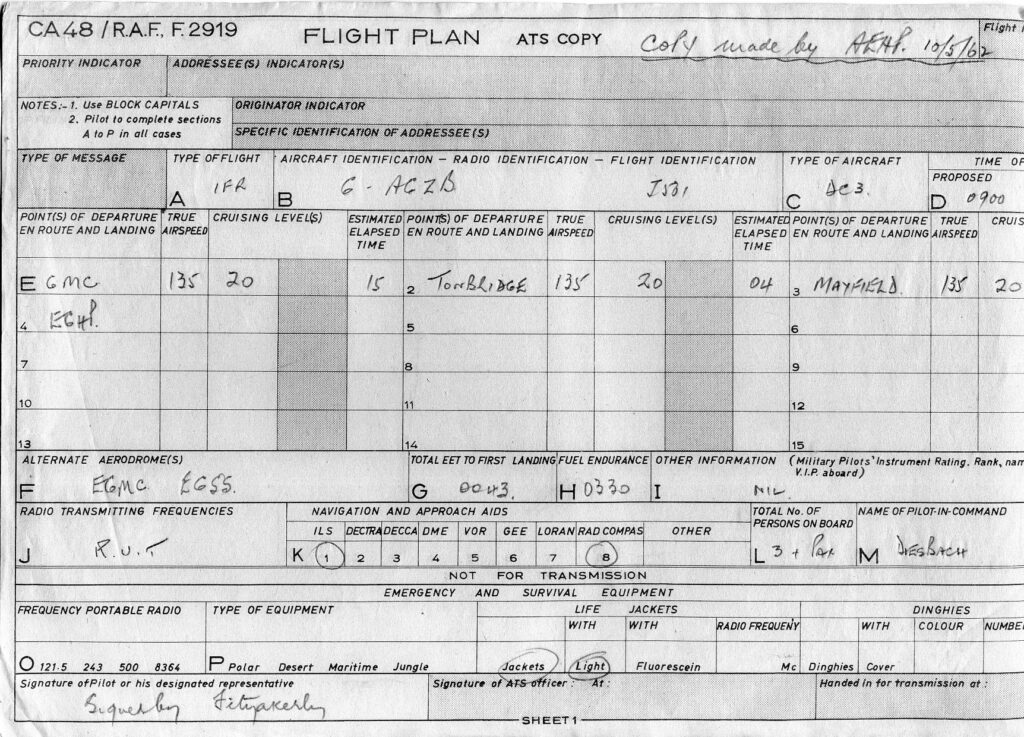 CA48/R.A.F., F.2919 FLIGHT PLAN ATS COPY Copy made by 10/5/62 Flight
PRIORITY INDICATOR ADDRESSEE(S) INDICATOR(S)
NOTES:- 1. Use BLOCK CAPITALS ORIGINATOR INDICATOR
2. Pilot to complete sections
A to P in all cases SPECIFIC IDENTIFICATION OF ADDRESSEE(S)
TYPE OF MESSAGE TYPE OF FLIGHT AIRCRAFT IDENTIFICATION – RADIO IDENTIFICATION – FLIGHT IDENTIFICATION TYPE OF AIRCRAFT TIME OF
PROPOSED
A IFR B G - AGZB J531 C DC3. D 0900
POINT(S) OF DEPARTURE TRUE CRUISING LEVEL(S) ESTIMATED POINT(S) OF DEPARTURE TRUE CRUISING LEVEL(S) ESTIMATED POINT(S) OF DEPARTURE TRUE CRUIS
EN ROUTE AND LANDING AIRSPEED ELAPSED EN ROUTE AND LANDING AIRSPEED ELAPSED EN ROUTE AND LANDING AIRSPEED
TIME TIME
E GMC 135 20 15 2 TONBRIDGE 135 20 04 3 MAYFIELD. 135 20
4 EGHP. 5 6
7 8 9
10 11 12
13 14 15
ALTERNATE AERODROME(S) TOTAL EET TO FIRST LANDING FUEL ENDURANCE OTHER INFORMATION (Military Pilots' Instrument Rating. Rank, nam
V.I.P. aboard)
F EGMC EGSS. G 0043. H 0330 I NIL.
RADIO TRANSMITTING FREQUENCIES NAVIGATION AND APPROACH AIDS TOTAL No. OF NAME OF PILOT-IN-COMMAND
ILS DECTRA DECCA DME VOR GEE LORAN RAD COMPAS OTHER PERSONS ON BOARD
J R.U.T K 1 2 3 4 5 6 7 8 L 3 + Pax M DIESBACH
NOT FOR TRANSMISSION
EMERGENCY AND SURVIVAL EQUIPMENT
FREQUENCY PORTABLE RADIO TYPE OF EQUIPMENT LIFE JACKETS DINGHIES
WITH WITH RADIO FREQUENY WITH COLOUR NUMBE
O 121·5 243 500 8364 P Polar Desert Maritime Jungle Jackets Light Fluorescein Mc Dinghies Cover
Signature of Pilot or his designated representative Signature of ATS officer : At : Handed in for transmission at :
SHEET 1